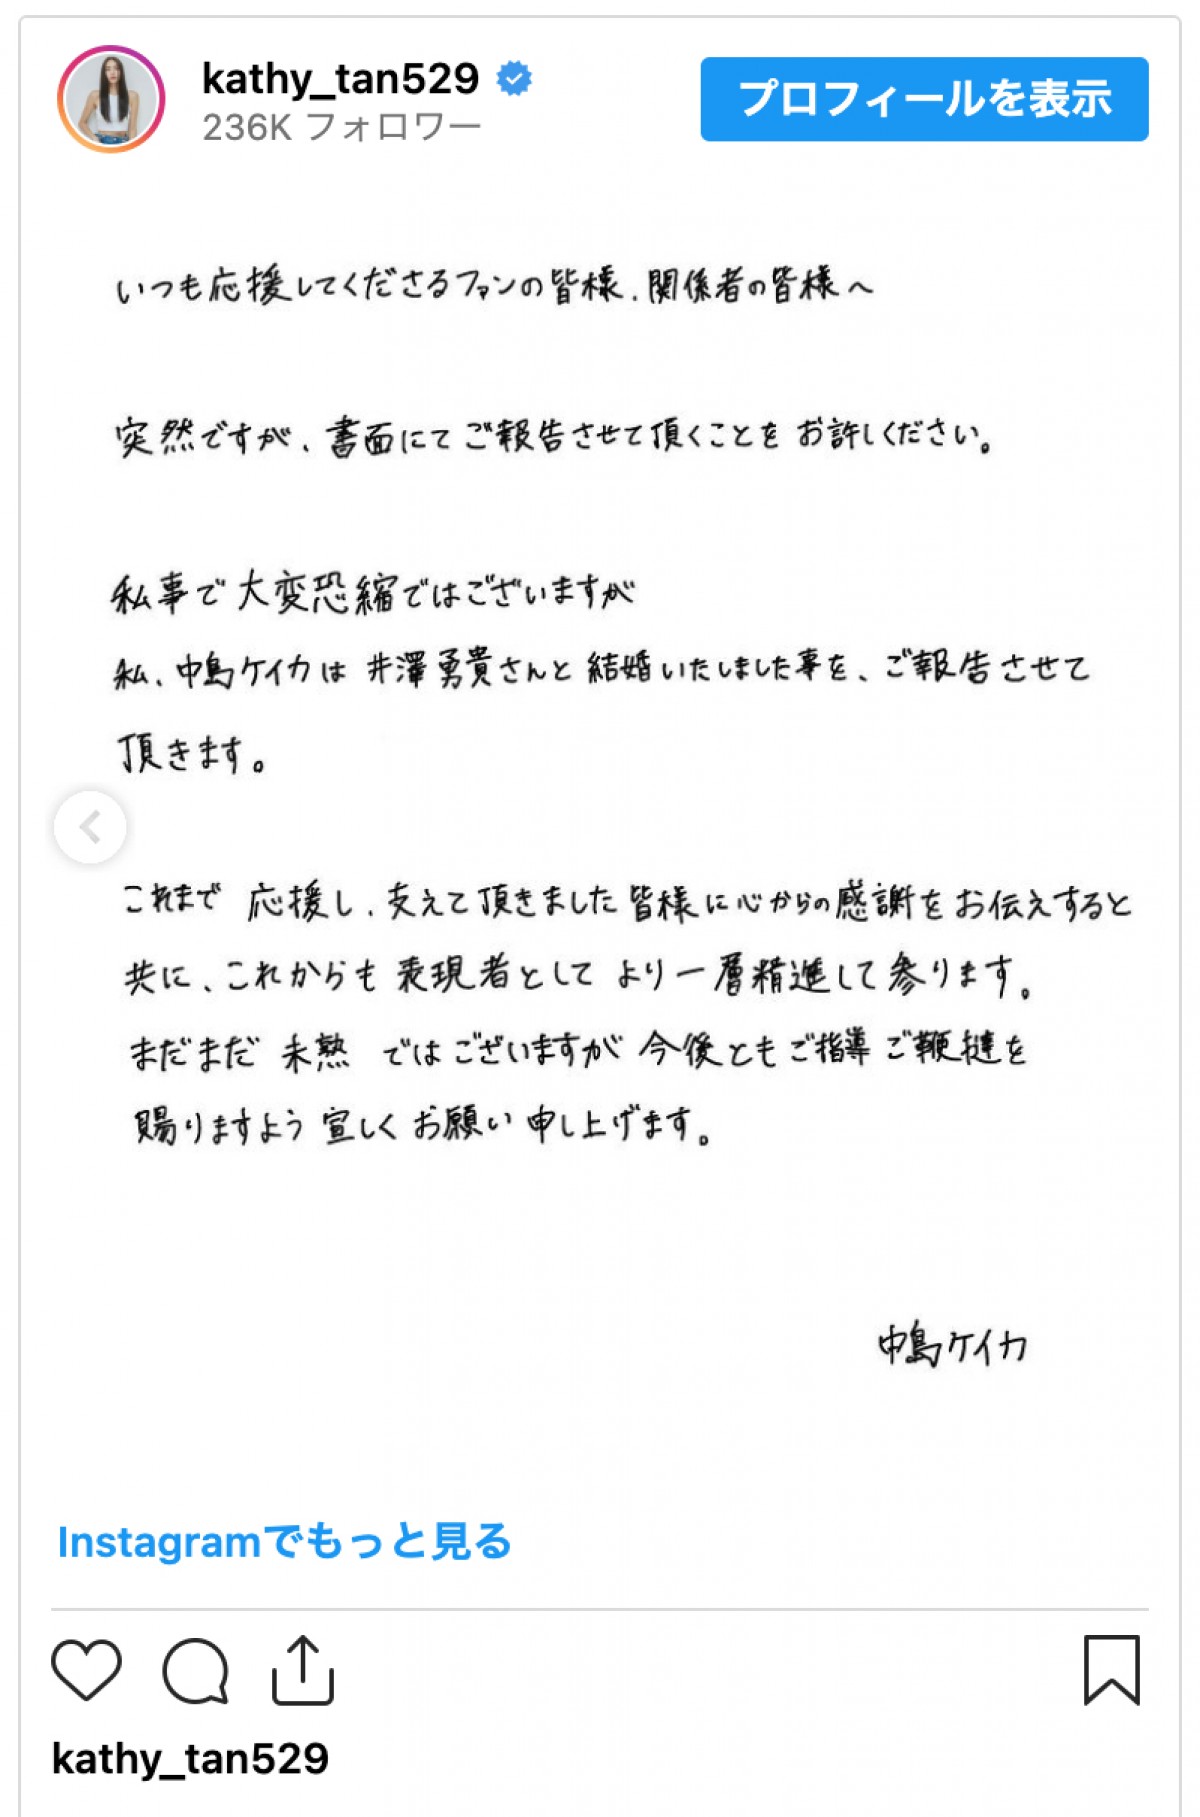 kathy_tan529
236K フォロワー
プロフィールを表示
いつも応援してくださるファンの皆様、関係者の皆様へ
突然ですが、書面にてご報告させて頂くことをお許しください。
私事で大変恐縮ではございますが
私、中島ケイカは井澤勇貴さんと結婚いたしました事を、ご報告させて
頂きます。
これまで応援し、支えて頂きました皆様に心からの感謝をお伝えすると
共に、これからも表現者としてより一層精進して参ります。
まだまだ未熟ではございますが今後ともご指導ご鞭撻を
賜りますよう宜しくお願い申し上げます。
中島ケイカ
Instagramでもっと見る
kathy_tan529